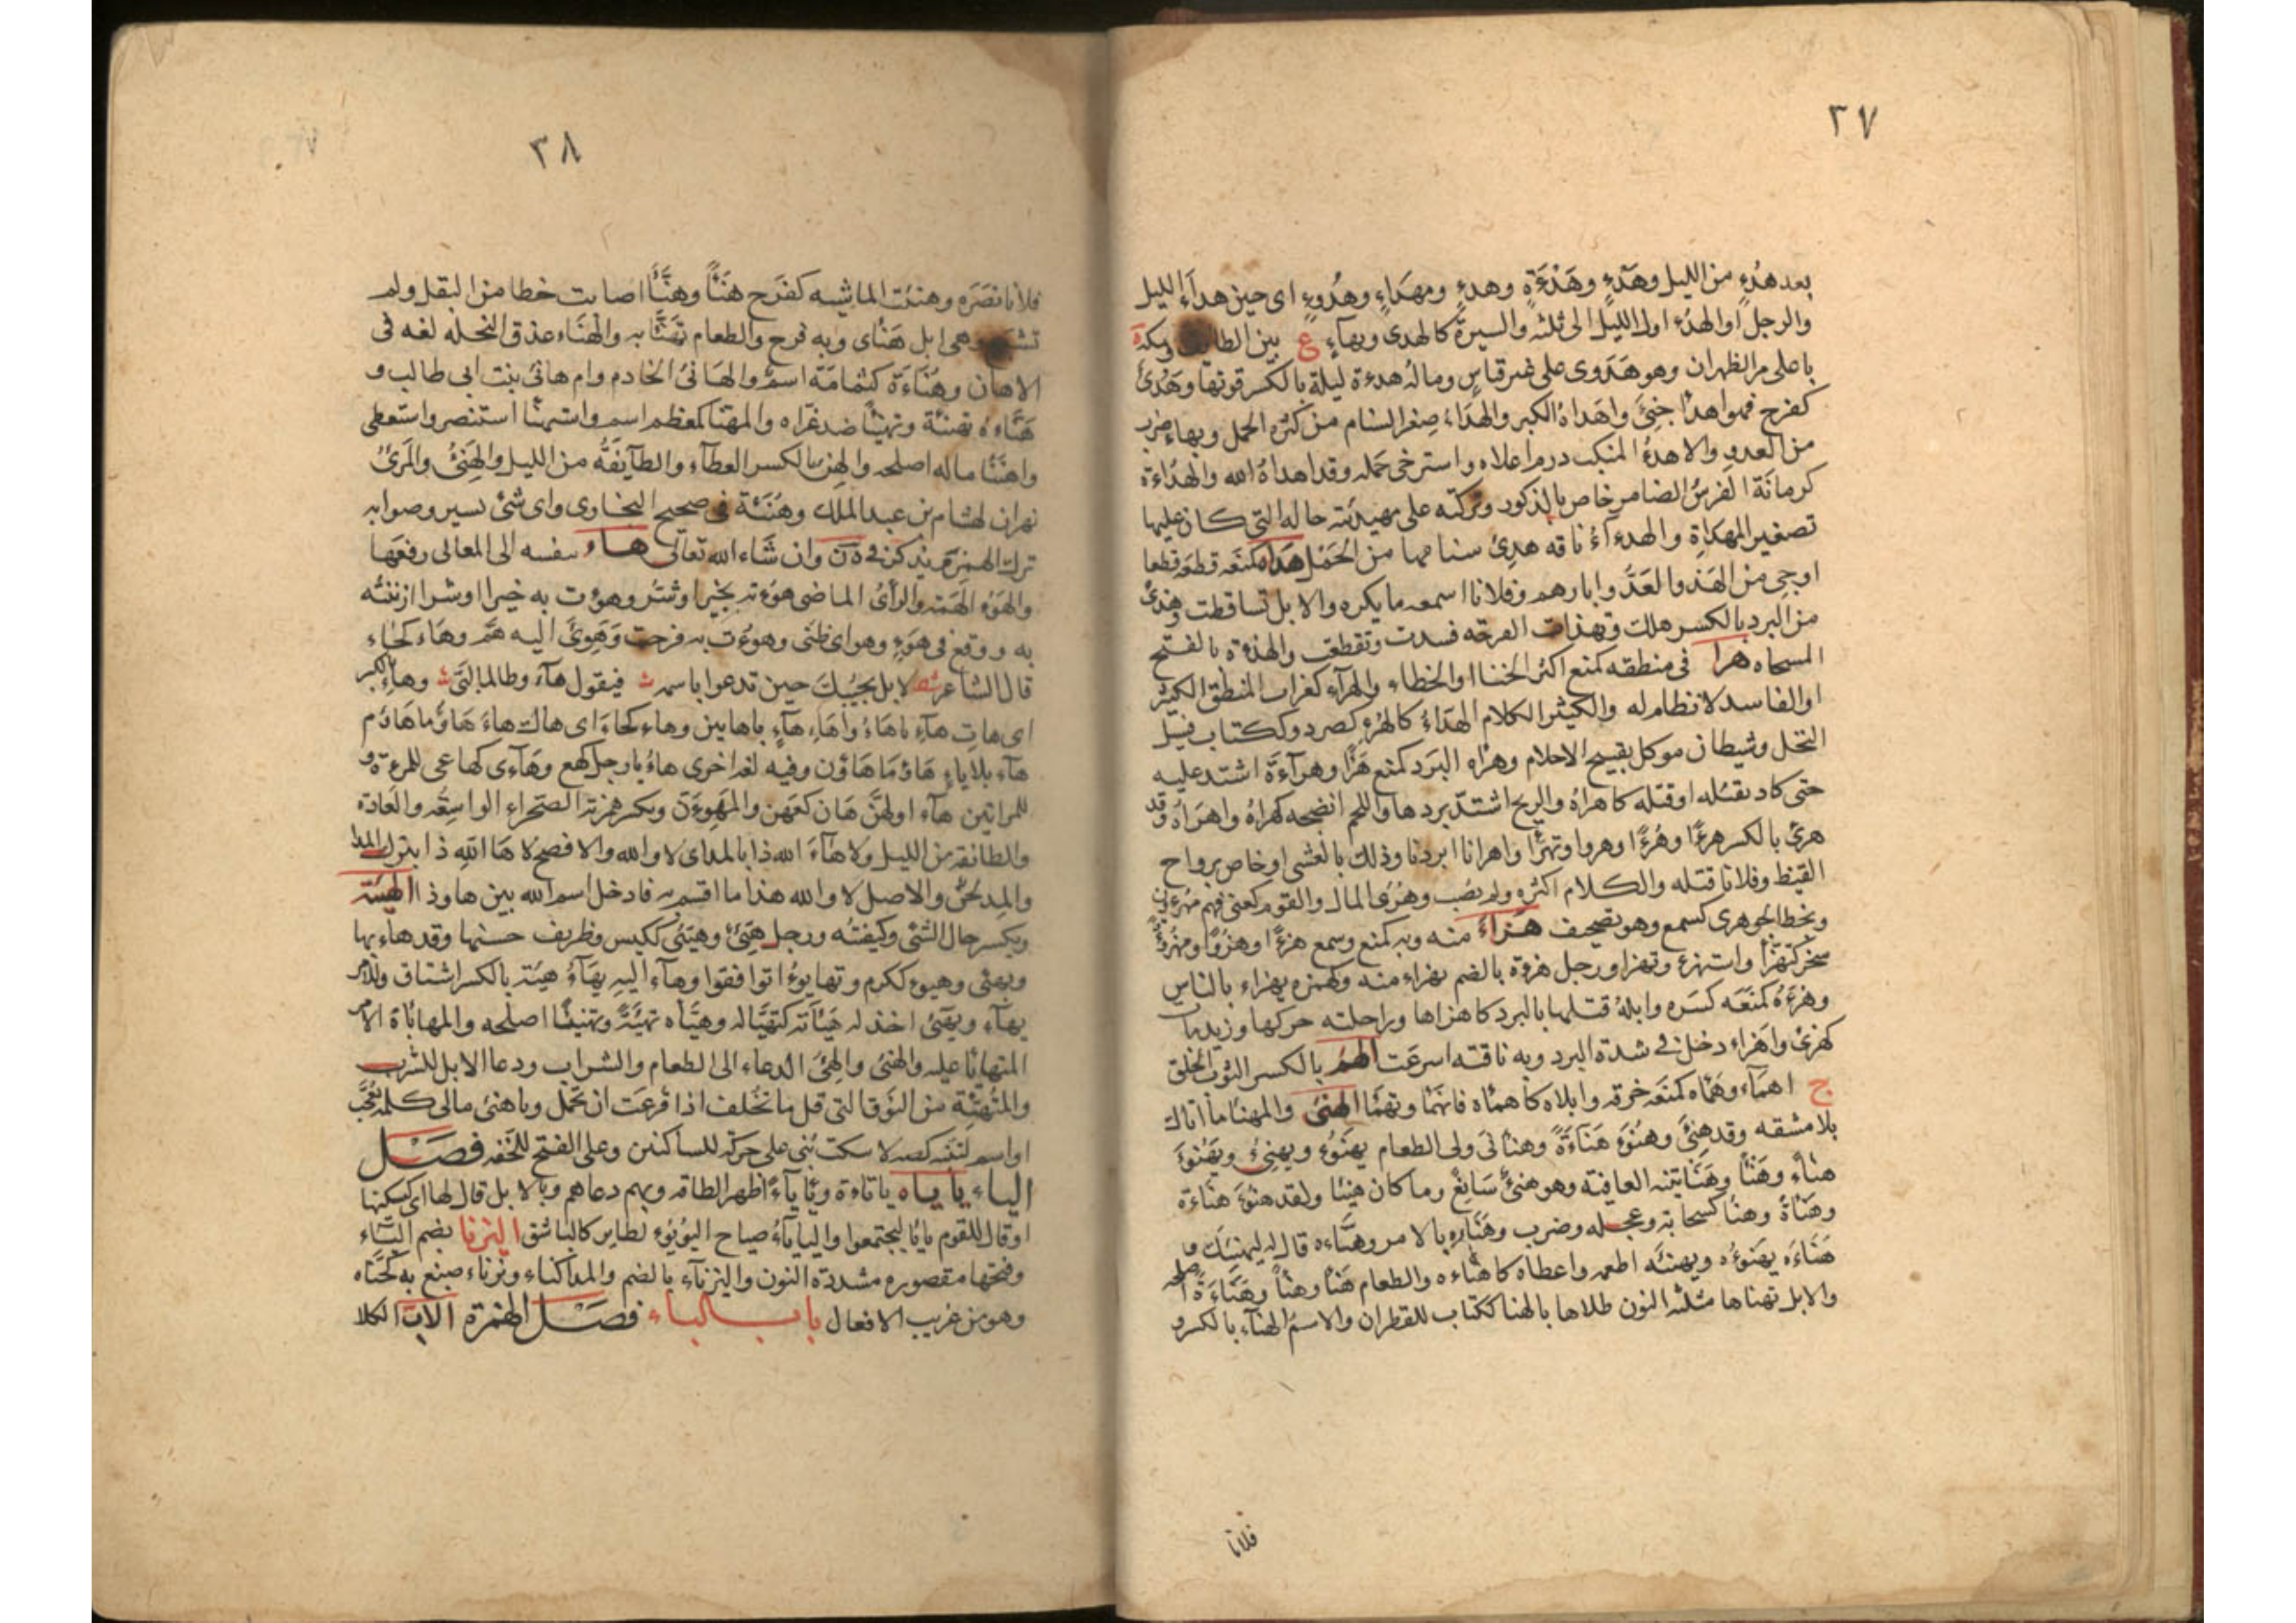 ٣٧
بعد هُدءٍ من الليل وهَدْءٍ وهَدْءَةٍ وهدءٍ ومهدَاءٍ وهُدوءٍ اى حين هدأ الليل
والرجل او الهدُء اول الليل الى ثلثه والسيرة كالهدى وبهآءٍ ع بين الطايف ومكة
باعلى مر الظهران وهو هَدَوى على غير قياسٍ وماله هدءة ليلة بالكسر قوتها وهَدِئ
كفرح فهو اهدأ جنِئَ واهدَاهُ الكبر والهدَاء صِغر السنام من كثره الحمل وبهاءٍ ضرب
من العدو والاهدءُ المنكب درم اعلاه واسترخى حَمله وقد اهداهُ الله والهدّاءة
كرمانَة الفرسُ الضامر خاص بالذكور وتركته على مهيدئته حاله التى كان عليها
تصغير المهداةِ والهدءآءُ ناقه هدِئ سنامها من الحَمْل هَذَاهُ كمنعَه قطعَه قطعا
اوحى من الهَذ والعَدُوَّ ابارهم وفلانا اسمعه ما يكره والابل تساقطت وهذئ
من البرد بالكسر هلك وتهذات القرحه فسدت وتقطعت والهذءة بالفتح
المسحاه هرا فى منطقه كمنع اكثر الخنا او الخطاء والهرآء كغراب المنطق الكثير
او الفاسد لا نظام له والكيثر الكلام الهذاءُ كالهُرءِ كصرد وككتاب فسيل
النخل وشيطان موكل بقبيح الاحلام وهراه البَرَد كمنع هَرْءًا وهرآءَةً اشتد عليه
حتى كاد يقتله او قتله كاهراهُ والريح اشتدّ بردها واللحم انضجه كهراهُ واهرَاهُ وقد
هرئ بالكسر هرءًا وهُرءًا وهروا وتهرّأ واهرانا ابردنا وذلك بالعشى او خاص برواح
القيظ وفلانا قتله والكلام اكثره ولم يصُب وهُرِى المال والقوم كعنى فهم مهرءون
وبخط الجوهرى كسمع وهو تصحيف هَزاءَ منه وبه كمنع وسمع هزءًا وهزُوًا ومهزُءَة
سخر كتهزَّأ واستهزء وتهزا ورجل هزءة بالضم يهزاء منه وكهمزه يهزاء بالناس
وهزءَهُ كمنعَه كسَره وابلهُ قتلها بالبرد كاهزاها وراحلته حركها وزيد مات
كهزئ واهزاء دخل فى شدة البرد وبه ناقته اسرعَت الهمُ بالكسر الثوب الخلق
ج اهمآء وهماه كمنعَه خرقه وابلاه كاهماه فانهمَا وتهمَّا الهنئ والمهنا ما اتاك
بلا مشقه وقد هنِئَ وهنُوءَ هَنَآءَةً وهنأنىَ ولى الطعام يهنَوُ ويهنِئ ويَهنُوءُ
هناءً وهَنْأً وهَنَايتنه العافية وهو هنئٌ سَائِغٌ وما كان هنيئا ولقد هنُوءَ هناءة
وهَنأةً وهنئاً كسحابة وعجله وضرب وهَنَاهُ بالامر وهنَّاءه قال له ليهنِيَك و
هَنَاءَه يهنَوُه ويهنئه اطعمه واعطاه كاهناءه والطعام هَنْأً وهِنْأً وهَنَاءَةً اصلحه
والابل يهناها مثلثه النون طلاها بالهنا ككتاب للقطران والاسمُ الهنآء بالكسر و
فلانا
٣٨
فلانا نصَرَه وهنئت الماشيه كفَرح هَنَأً وهَنْأً اصابت خطا من البقل ولم
تشبع وهى ابل هَنْاى وبه فرح والطعام تَهنَّا به والهنَاء عذق النخله لغه فى
الاهان وهُنَاءَة كثمامَة اسم والهَانئُ الخادم وام هانئ بنت ابى طالب و
هَنَّاءه تهنئة وتهنيئًا ضد عَزّاه والمهَنّا كمعظم اسم واستهنأ استنصر واستعطى
واهتنأ ماله اصلحه والهن بالكسر العطآء والطآيفَةُ من الليل والهَنِئُ والمَرِئُ
نهران لهشام بن عبد الملك وهُنَيْئَة فى صحيح البخارى واى شئ يسير وصوابه
ترك الهمزة ويذكر فى ه ن وان شاء الله تعالى هاءَ بنفسه الى المعالى رفعَها
والهَوْء الهَمّة والرأىُ الماضى هوُءته بخير او شر وهؤت به خيرا او شرا ازننته
به ووقع فى هَوءِ وهو اى ظنى وهوءت به فرحت وَهَوِئَ اليه هَمَّ وهَاء كجاء
قال الشاعر شعر لابل يجيبُكَ حين تدعوا باسمه ث فيقول هآء وطالما لبّى ث وهاءِ بالكسر
اى هاتِ هآءِ ياهَاءُ وهَاءِ هآءٍ ياهابين وهاءٍ كجاءَ اى هاك هاءَ هَاؤُما هَاؤُم
هآءِ بلاياءٍ هَاؤُمَا هَاؤُن وفيه لغه اخرى هاءْ يا رجل كهع وهَآءى كهاعى للمرءَة و
للمراتين هآءا ولهنَّ هَان كهعن والمهوءَن وبكسر همزته الصحراء الواسعَة والعَادَة
والطائفة من الليل ولا هآءَ الله ذا بالمد اى لا والله والافصح لا هَا اللهِ ذا بترك المد
والمد لحن والاصل لا والله هذا ما اقسم به فادخل اسم الله بين ها وذا الهيئة
وبكسر حال الشئ وكيفتُه ورجل هَيّئٌ وهَيِئٌ ككيس وظريف حسنها وقد هاءَ يها
ويهئى وهيوء ككرم وتهايوءُا توافقوا وهآء اليهِ يهَآءُ هيئة بالكسر اشتاق وللامر
يهآء ويهئ اخذ له هَيْأته كتهَيَّا له وهيّأه تهيئَةً وتهيئًا اصلحه والمهاياَة الامر
المتهايَا عليه والهئ والهِئ الدعاء الى الطعام والشراب ودعا الابل للشرب
والمُتَهَيِّئَة من النوق التى قل ما تخلف اذا قرعت ان تحمل وياهئ مالى كلمة تعجّب
او اسم لتنبه كصه لاسكت بُنى على حركة للساكنين وعلى الفتح للخفه فصل
الياء يا ياه ياءَة ويَأيآءً اظهر الطاقه وبهم دعاهم وبالابل قال لها اى ليسكنها
او قال للقوم يايا ليجتمعوا واليايآءُ صياح اليُويُوء لطاير كالباشق اليرنا بضم الياء
وفتحها مقصوره مشددة النون واليرنآء بالضم والمد الحناء ويرناء صبغ به كحنّاه
وهو من غريب الافعال باب الباء فصل الهمزة الابّ الكلا